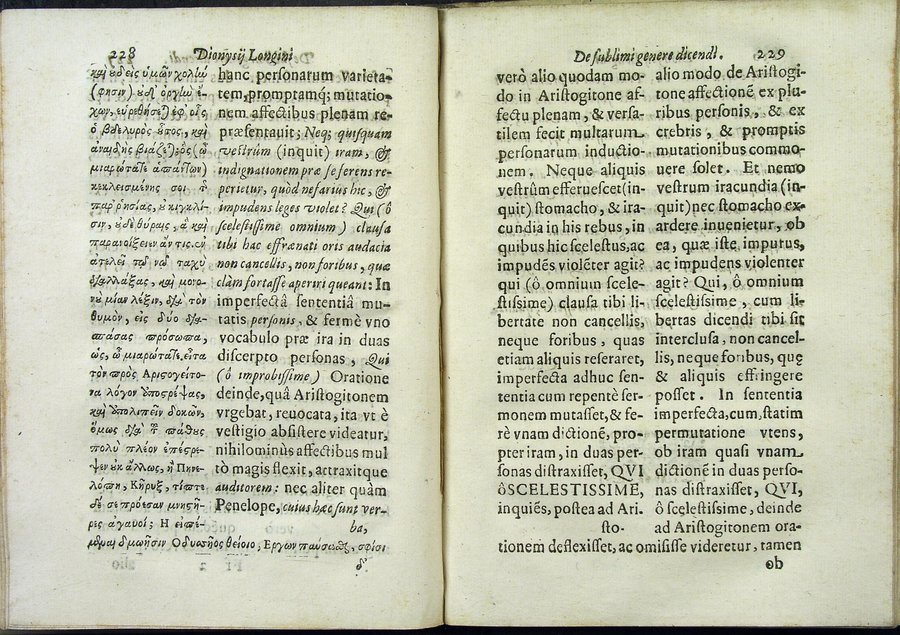 228 Dionysij Longini
καὶ οὐδεὶς ὑμῶν χολὴν
(φησιν) οὐδ' ὀργὴν ἔ-
χων, εὑρεθήσεται ἐφ' οἷς
ὁ βδελυρὸς οὗτος, καὶ
ἀναιδὴς βιάζεται; ὃς (ὦ
μιαρώτατε ἁπάντων)
κεκλεισμένης σοι τῆς
παρρησίας, οὐ κιγκλί-
σιν, οὐδὲ θύραις, ἃ καὶ
παρανοίξειεν ἄν τις. ἐν
ἀτελεῖ τῷ νῷ ταχὺ
διαλλάξας, καὶ μονο-
νοὺ μίαν λέξιν, διὰ τὸν
θυμὸν, εἰς δύο δια-
σπάσας πρόσωπα,
ὡς, ὦ μιαρώτατε. εἶτα
τὸν πρὸς Ἀριστογείτο-
να λόγον ἀποστρέψας,
καὶ ἀπολιπεῖν δοκῶν,
ὅμως διὰ τοῦ πάθους
πολὺ πλέον ἐπέστρε-
ψεν οὐκ ἄλλως, ἢ Πηνε-
λόπη, Κῆρυξ, τίπτε
δέ σε πρόεσαν μνηστῆ-
ρες ἀγαυοί; Ἢ εἰπέ-
μεναι δμωῇσιν Ὀδυσσῆος θείοιο, Ἔργων παύσασθαι, σφίσι
δ'
hanc personarum varieta-
tem, promptamq; mutatio-
nem affectibus plenam re-
præsentauit; Neq; quisquam
vestrûm (inquit) iram, &
indignationem præ se ferens re-
perietur, quòd nefarius hic, &
impudens leges violet? Qui (ô
scelestissime omnium) clausa
tibi hac effrænati oris audacia
non cancellis, non foribus, quæ
clàm fortasse aperiri queant: In
imperfectâ sententiâ mu-
tatis personis, & fermè vno
vocabulo præ ira in duas
discerpto personas, Qui
(ô improbissime) Oratione
deinde, quâ Aristogitonem
vrgebat, reuocata, ita vt è
vestigio absistere videatur,
nihilominùs affectibus mul
tò magis flexit, attraxitque
auditorem: nec aliter quàm
Penelope, cuius hæc sunt ver-
ba,
De sublimi genere dicendi. 229
verò alio quodam mo-
do in Aristogitone af-
fectu plenam, & versa-
tilem fecit multarum
personarum inductio-
nem. Neque aliquis
vestrûm efferuescet (in-
quit) stomacho, & ira-
cundia in his rebus, in
quibus hic scelestus, ac
impudẽs violẽter agit?
qui (ô omnium scele-
stissime) clausa tibi li-
bertate non cancellis,
neque foribus, quas
etiam aliquis reseraret,
imperfecta adhuc sen-
tentia cum repentè ser-
monem mutasset, & fe-
rè vnam dictionẽ, pro-
pter iram, in duas per-
sonas distraxisset, QVI
ôSCELESTISSIME,
inquiẽs, postea ad Ari-
sto-
alio modo de Aristogi-
tone affectionẽ ex plu-
ribus personis, & ex
crebris, & promptis
mutationibus commo-
uere solet. Et nemo
vestrum iracundia (in-
quit) nec stomacho ex-
ardere inuenietur, ob
ea, quæ iste impurus,
ac impudens violenter
agit? Qui, ô omnium
scelestissime, cum li-
bertas dicendi tibi sit
interclusa, non cancel-
lis, neque foribus, quę
& aliquis effringere
posset. In sententia
imperfecta, cum, statim
permutatione vtens,
ob iram quasi vnam
dictionẽ in duas perso-
nas distraxisset, QVI,
ô scelestissime, deinde
ad Aristogitonem ora-
tionem deflexisset, ac omisisse videretur, tamen
ob